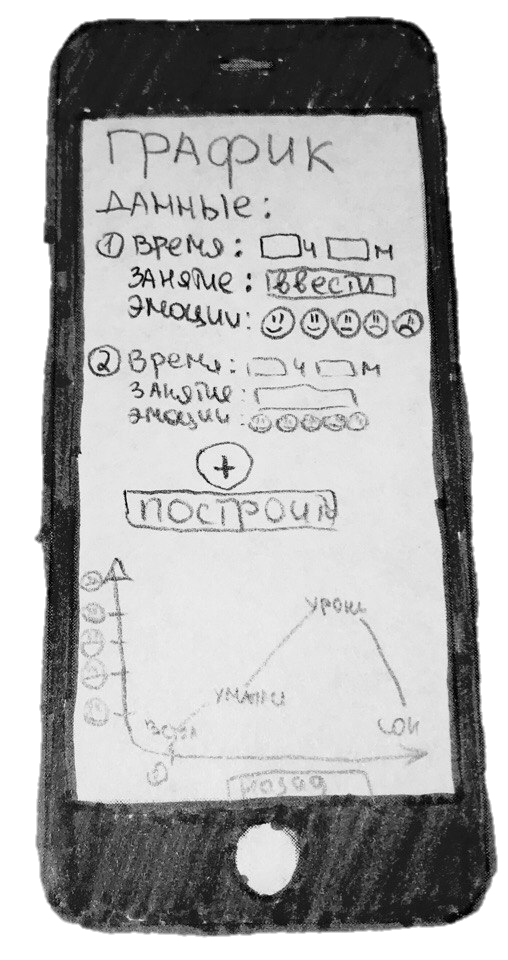 ГРАФИК
ДАННЫЕ:
1 ВРЕМЯ: Ч М
ЗАНЯТИЕ: ВВЕСТИ
ЭМОЦИИ:
2 ВРЕМЯ: Ч М
ЗАНЯТИЕ:
ЭМОЦИИ:
+
ПОСТРОИТЬ
УРОКИ
СОН
НАЗАД